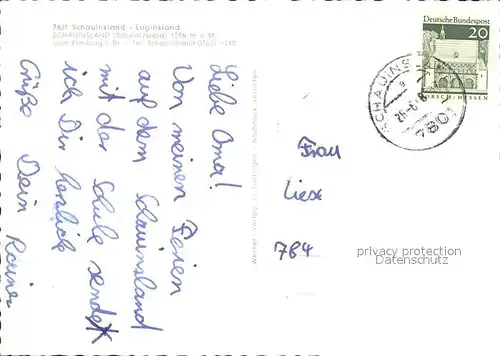 7801 Schauinsland - Luginsland
SCHAUINSLAND (Schwarzwald) 1256 m ü. M.
über Freiburg i. Br. - Tel. Schauinsland (0760)
Liebe Oma!
Von meinen Ferien
auf dem Schauinsland
mit der Schule sendet
ich Dir herzlich
Grüße Dein Rainer
Deutsche Bundespost
20
LORSCH/HESSEN
SCHAUINSLAND
7801
Frau
Liese
784
privacy protection
Datenschutz